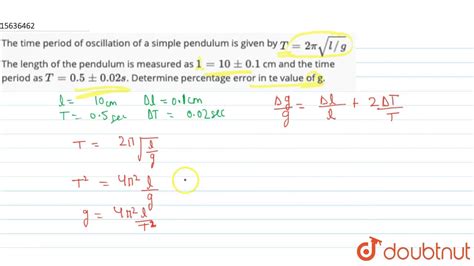 15636462
The time period of oscillation of a simple pendulum is given by T = 2π√l/g
The length of the pendulum is measured as 1 = 10 ± 0.1 cm and the time
period as T = 0.5 ± 0.02s. Determine percentage error in te value of g.
l = 10cm Δl = 0.1cm Δg/g = Δl/l + 2ΔT/T
T = 0.5 sec ΔT = 0.02 sec
T = 2π√l/g
T² = 4π² l/g
g = 4π² l/T²
doubtnut